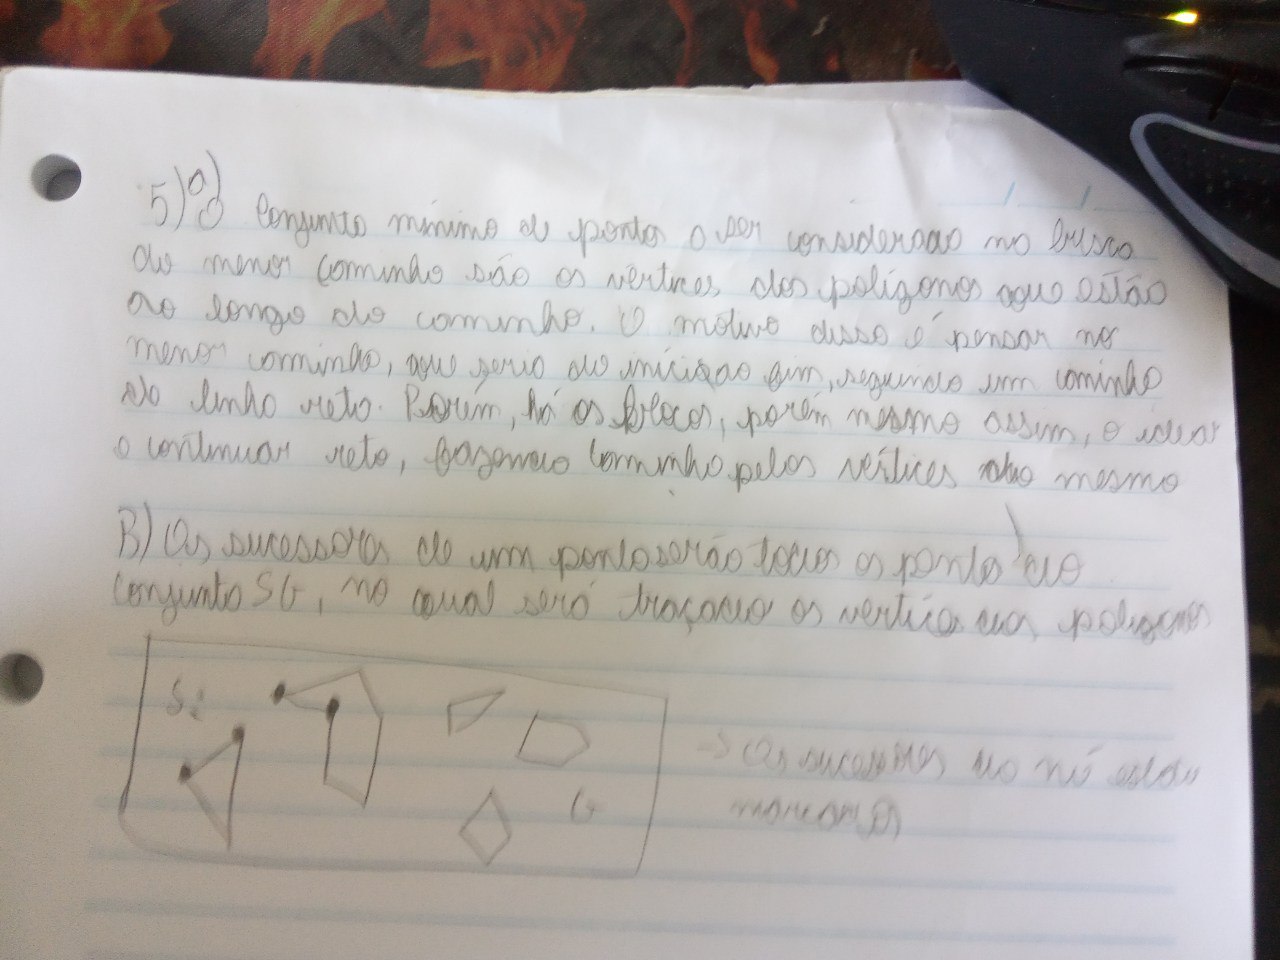 5) a) O conjunto mínimo de pontos a ser considerado na busca
do menor caminho são os vértices dos polígonos que estão
ao longo do caminho. O motivo disso é pensar no
menor caminho, que seria do inicio ao fim, seguindo um caminho
de linha reta. Porém, há os blocos, porém mesmo assim, o ideal
é continuar reto, fazendo caminho pelos vértices do mesmo
B) Os sucessores de um ponto serão todos os ponto do
conjunto SG, no qual será traçado os vertices dos poligonos
S:
G
-> Os sucessores do nó estão
marcados